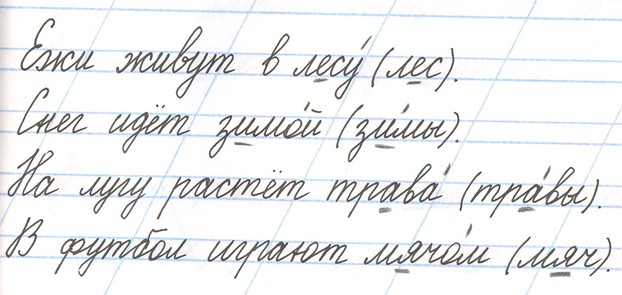 Ежи живут в лесу́ (лес).
Снег идёт зимо́й (зи́мы).
На лугу растёт трава́ (тра́вы).
В футбол играют мячо́м (мяч).